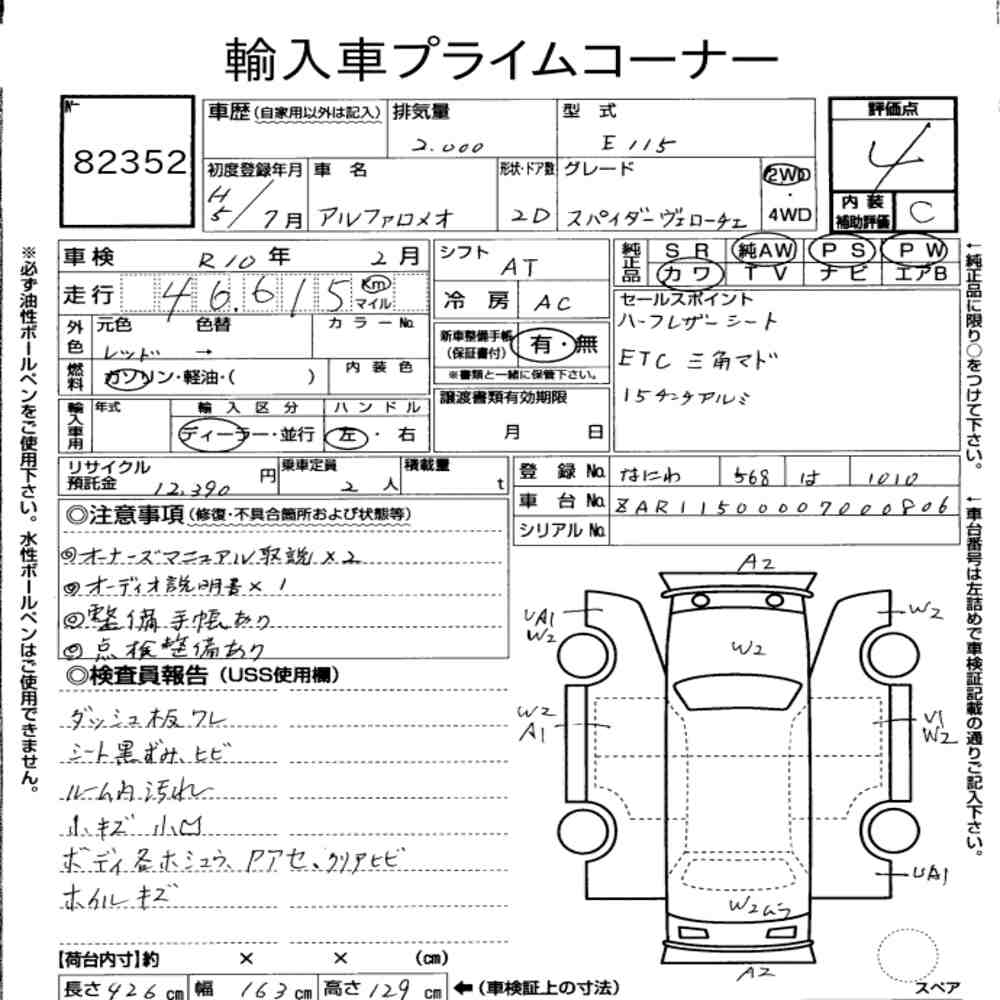 輸入車プライムコーナー
82352
車歴(自家用以外は記入) 排気量 2.000 型式 E115 評価点 4
初度登録年月 H5/7月 車名 アルファロメオ 形状・ドア数 2D グレード スパイダーヴェローチェ 2WD・4WD 内装補助評価 C
車検 R10年 2月 シフト AT 純正品 SR 純AW PS PW
カワ TV ナビ エアB
走行 46.615 Km マイル 冷房 AC
セールスポイント
ハーフレザーシート
ETC 三角マド
15インチアルミ
外色 元色 レッド 色替 → カラーNo. 新車整備手帳(保証書付) 有・無
※書類と一緒に保管下さい。
燃料 ガソリン・軽油・( ) 内装色
譲渡書類有効期限 月 日
輸入車用 年式 輸入区分 ディーラー・並行 ハンドル 左・右
リサイクル預託金 12.390円 乗車定員 2人 積載量 t
登録No. なにわ 568 は 1010
車台No. ZAR11500007000806
シリアルNo.
◎注意事項(修復・不具合箇所および状態等)
◎オーナーズマニュアル取説×2
◎オーディオ説明書×1
◎整備手帳あり
◎点検整備あり
◎検査員報告(USS使用欄)
ダッシュ板ワレ
シート黒ずみ、ヒビ
ルーム内汚れ
小キズ 小凹
ボディ各ホシュウ、Pアセ、クリアヒビ
ホイルキズ
【荷台内寸】約 × × (cm)
長さ426cm 幅163cm 高さ129cm ←(車検証上の寸法)
A2
UA1
W2
W2
W2
W2
A1
V1
W2
UA1
W2ムラ
A2
スペア
※必ず油性ボールペンをご使用下さい。水性ボールペンはご使用できません。
←純正品に限り○をつけて下さい。
←車台番号は左詰めで車検証記載の通りご記入下さい。